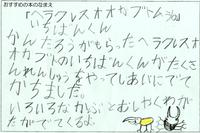 おすすめの本のなまえ
「ヘラクレスオオカブトムシの
いちばんくん」
かんたろうがもらったヘラクレスオ
オカブトのいちばんくんがたくさ
んれんしゅうをやってしあいにでて
かちました。
いろいろなかぶとむしやくわが
たがでてくるよ。